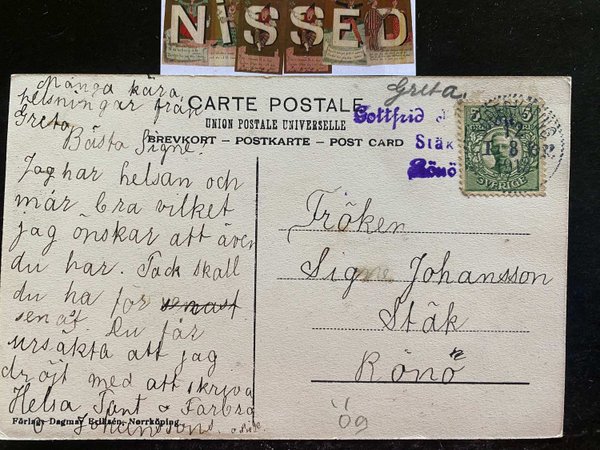 NISSED
Många kära
helsningar från
Greta
CARTE POSTALE
UNION POSTALE UNIVERSELLE
BREVKORT – POSTKARTE – POST CARD
Greta
Gottfrid
Stäk
Rönö
5 5
SVERIGE
Bästa Signe.
Jag har helsan och
mår bra vilket
jag önskar att även
du har. Tack skall
du ha för senast
senast. Du får
ursäkta att jag
dröjt med att skriva
Helsa Tant o Farbro
Johanssons.
Fröken
Signe Johansson
Stäk
Rönö
Ög
Förlag: Dagmar Eriksén, Norrköping